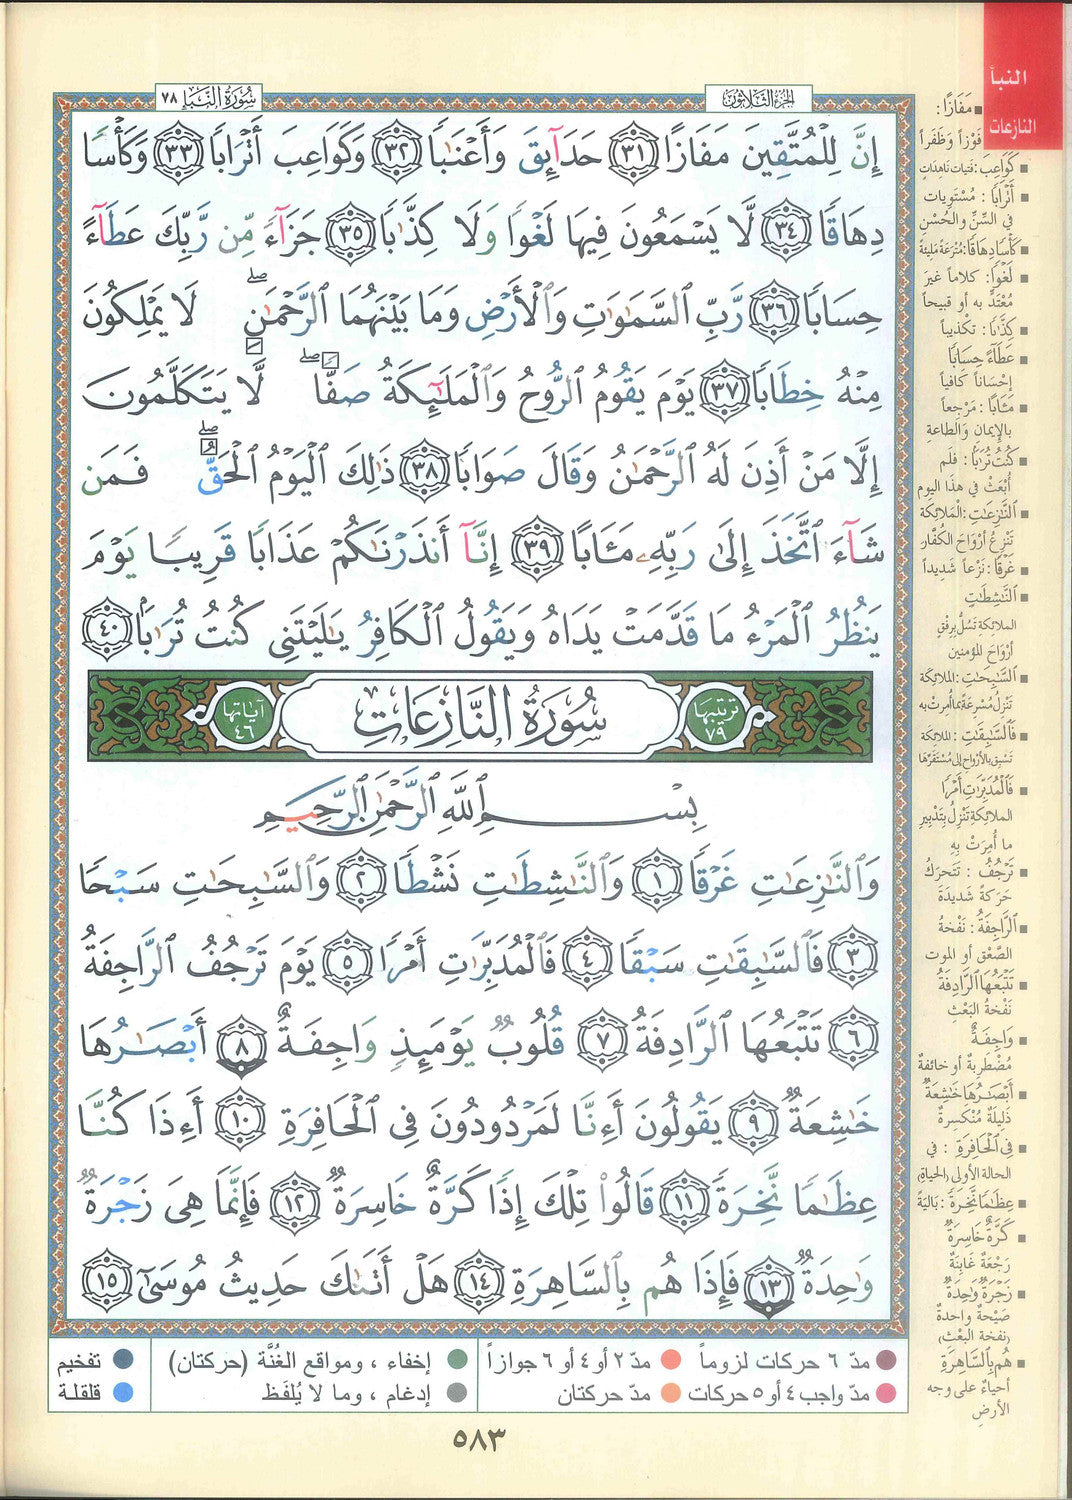 النبأ
النازعات
الجزء الثلاثون
سُورَةُ النَّبَإِ ٧٨
إِنَّ لِلْمُتَّقِينَ مَفَازًا ٣١ حَدَآئِقَ وَأَعْنَٰبًا ٣٢ وَكَوَاعِبَ أَتْرَابًا ٣٣ وَكَأْسًا
دِهَاقًا ٣٤ لَّا يَسْمَعُونَ فِيهَا لَغْوًا وَلَا كِذَّٰبًا ٣٥ جَزَآءً مِّن رَّبِّكَ عَطَآءً
حِسَابًا ٣٦ رَّبِّ ٱلسَّمَٰوَٰتِ وَٱلْأَرْضِ وَمَا بَيْنَهُمَا ٱلرَّحْمَٰنِ ۖ لَا يَمْلِكُونَ
مِنْهُ خِطَابًا ٣٧ يَوْمَ يَقُومُ ٱلرُّوحُ وَٱلْمَلَٰٓئِكَةُ صَفًّا ۖ لَّا يَتَكَلَّمُونَ
إِلَّا مَنْ أَذِنَ لَهُ ٱلرَّحْمَٰنُ وَقَالَ صَوَابًا ٣٨ ذَٰلِكَ ٱلْيَوْمُ ٱلْحَقُّ ۖ فَمَن
شَآءَ ٱتَّخَذَ إِلَىٰ رَبِّهِۦ مَـَٔابًا ٣٩ إِنَّآ أَنذَرْنَٰكُمْ عَذَابًا قَرِيبًا يَوْمَ
يَنظُرُ ٱلْمَرْءُ مَا قَدَّمَتْ يَدَاهُ وَيَقُولُ ٱلْكَافِرُ يَٰلَيْتَنِى كُنتُ تُرَٰبًۢا ٤٠
ترتيبها ٧٩ سُورَةُ النَّازِعَاتِ آياتها ٤٦
بِسْمِ ٱللَّهِ ٱلرَّحْمَٰنِ ٱلرَّحِيمِ
وَٱلنَّٰزِعَٰتِ غَرْقًا ١ وَٱلنَّٰشِطَٰتِ نَشْطًا ٢ وَٱلسَّٰبِحَٰتِ سَبْحًا
٣ فَٱلسَّٰبِقَٰتِ سَبْقًا ٤ فَٱلْمُدَبِّرَٰتِ أَمْرًا ٥ يَوْمَ تَرْجُفُ ٱلرَّاجِفَةُ
٦ تَتْبَعُهَا ٱلرَّادِفَةُ ٧ قُلُوبٌ يَوْمَئِذٍ وَاجِفَةٌ ٨ أَبْصَٰرُهَا
خَٰشِعَةٌ ٩ يَقُولُونَ أَءِنَّا لَمَرْدُودُونَ فِى ٱلْحَافِرَةِ ١٠ أَءِذَا كُنَّا
عِظَٰمًا نَّخِرَةً ١١ قَالُوا۟ تِلْكَ إِذًا كَرَّةٌ خَاسِرَةٌ ١٢ فَإِنَّمَا هِىَ زَجْرَةٌ
وَٰحِدَةٌ ١٣ فَإِذَا هُم بِٱلسَّاهِرَةِ ١٤ هَلْ أَتَىٰكَ حَدِيثُ مُوسَىٰٓ ١٥
مَفَازًا :
فَوْزاً وَظَفَراً
كَوَاعِبَ : فتيات ناهدات
أَتْرَابًا : مُسْتَوِيات
في السِّنِّ والحُسْن
كَأْسًا دِهَاقًا : مُتْرَعَةً مَليئةً
لَغْوًا : كلاماً غير
مُعْتَدٍّ به أو قبيحاً
كِذَّٰبًا : تكذيباً
عَطَآءً حِسَابًا
إحْسَاناً كافياً
مَـَٔابًا : مَرْجعاً
بالإيمان والطاعة
كُنتُ تُرَٰبًا : فلم
أُبْعَثْ في هذا اليوم
ٱلنَّٰزِعَٰتِ : الملائكة
تَنْزِعُ أرْوَاحَ الكُفَّار
غَرْقًا : نَزْعاً شديداً
ٱلنَّٰشِطَٰتِ
الملائكة تَسُلُّ برفق
أرْوَاحَ المؤمنين
ٱلسَّٰبِحَٰتِ : الملائكة
تنزلُ مُسْرِعَةً بما أُمِرَتْ به
فَٱلسَّٰبِقَٰتِ : الملائكة
تَسْبِق بالأرْوَاح إلى مُسْتَقَرِّها
فَٱلْمُدَبِّرَٰتِ أَمْرًا
الملائكة تَنْزِلُ بِتَدْبِيرِ
ما أُمِرَتْ بِهِ
تَرْجُفُ : تَتحرّكُ
حَرَكَةً شَديدَةً
ٱلرَّاجِفَةُ : نَفْخَةُ
الصَّعْق أو الموت
تَتْبَعُهَا ٱلرَّادِفَةُ
نَفْخَةُ البَعْثِ
وَاجِفَةٌ
مُضْطَرِبَةٌ أو خائفةٌ
أَبْصَٰرُهَا خَٰشِعَةٌ
ذَليلةٌ مُنْكَسِرةٌ
فِى ٱلْحَافِرَةِ : في
الحالة الأولى (الحياة)
عِظَٰمًا نَّخِرَةً : بَالِيَةً
كَرَّةٌ خَاسِرَةٌ
رَجْعَةٌ غَابِنَةٌ
زَجْرَةٌ وَٰحِدَةٌ
صَيْحَةٌ واحدةٌ
(نفخة البعث)
هُم بِٱلسَّاهِرَةِ
أحياءٌ على وجه
الأرضِ
مدّ ٦ حركات لزوماً مدّ ٢ أو ٤ أو ٦ جوازاً إخفاء ، ومواقع الغُنَّة (حركتان) تفخيم
مدّ واجب ٤ أو ٥ حركات مدّ حركتان إدغام ، وما لا يُلفَظ قلقلة
٥٨٣